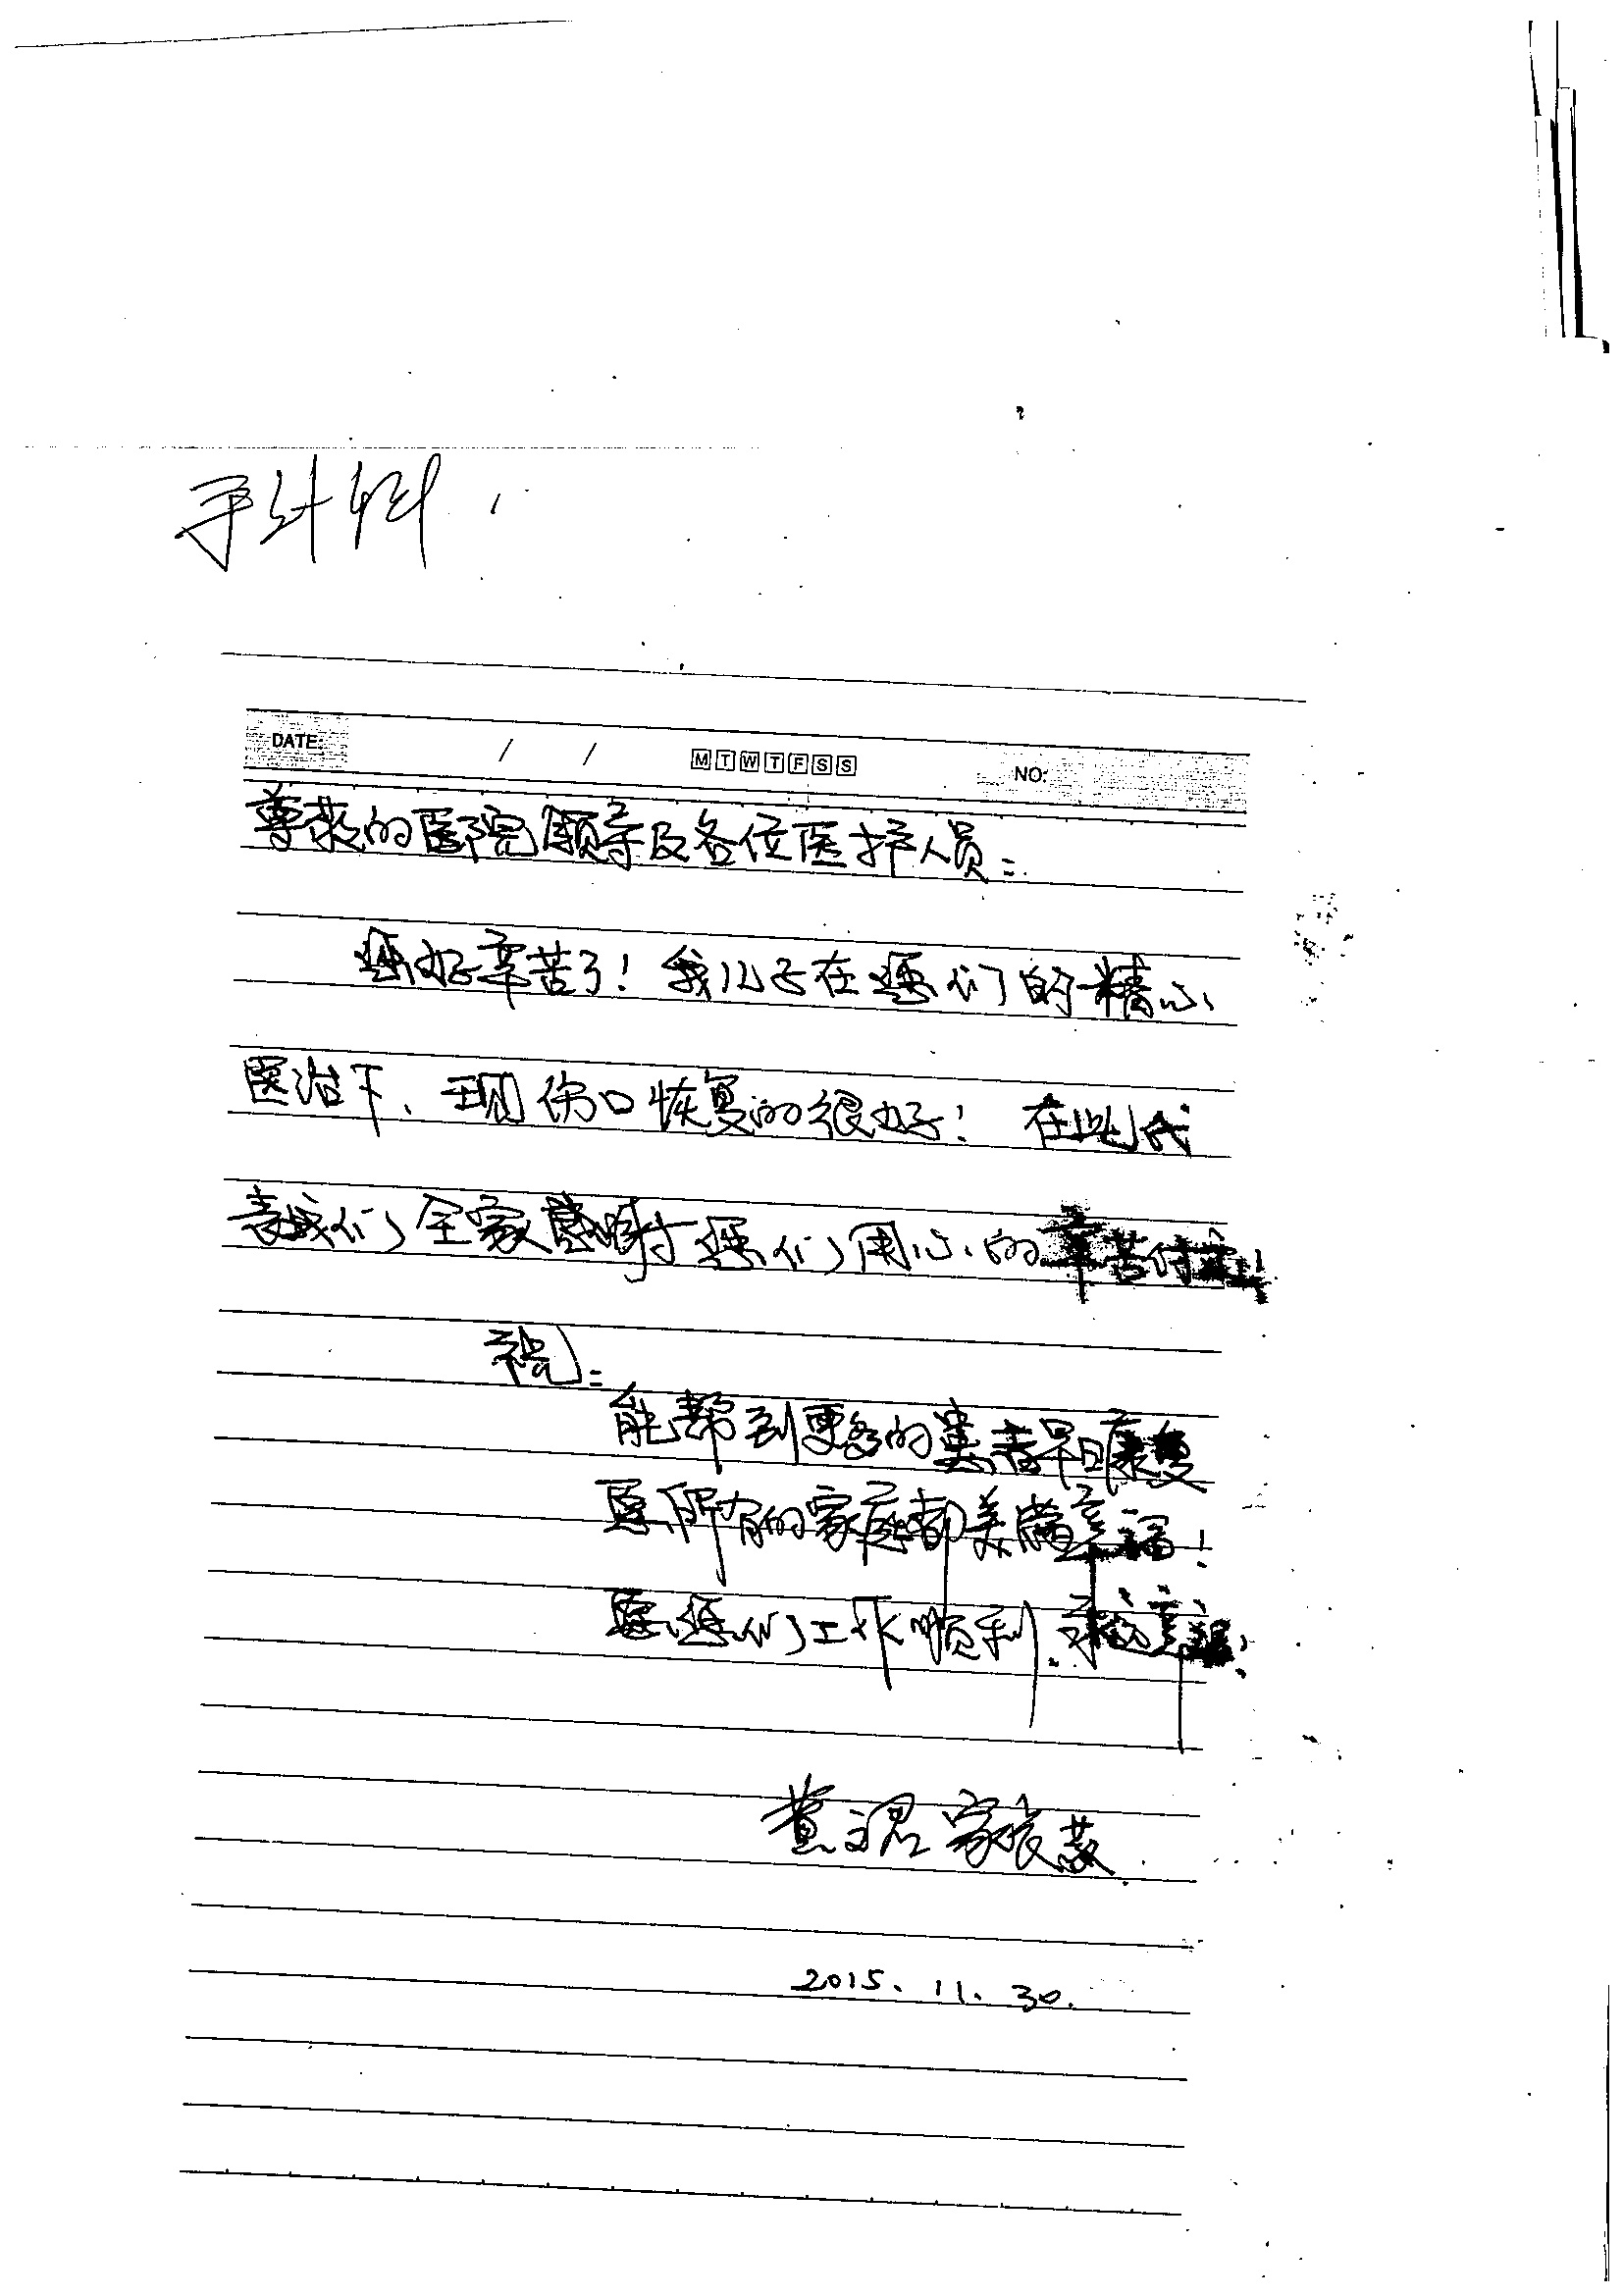 手外科
DATE: / / M T W T F S S NO:
尊敬的医院领导及各位医护人员:
您好辛苦了！我儿子在您们的精心
医治下、现伤口恢复的很好！在此代
表我们全家感谢您们用心的辛苦付出！
祝:
能帮到更多的患者早日康复
愿所有的家庭都美满幸福！
愿您们工作顺利.永远幸福！
黄 家长敬
2015.11.30.